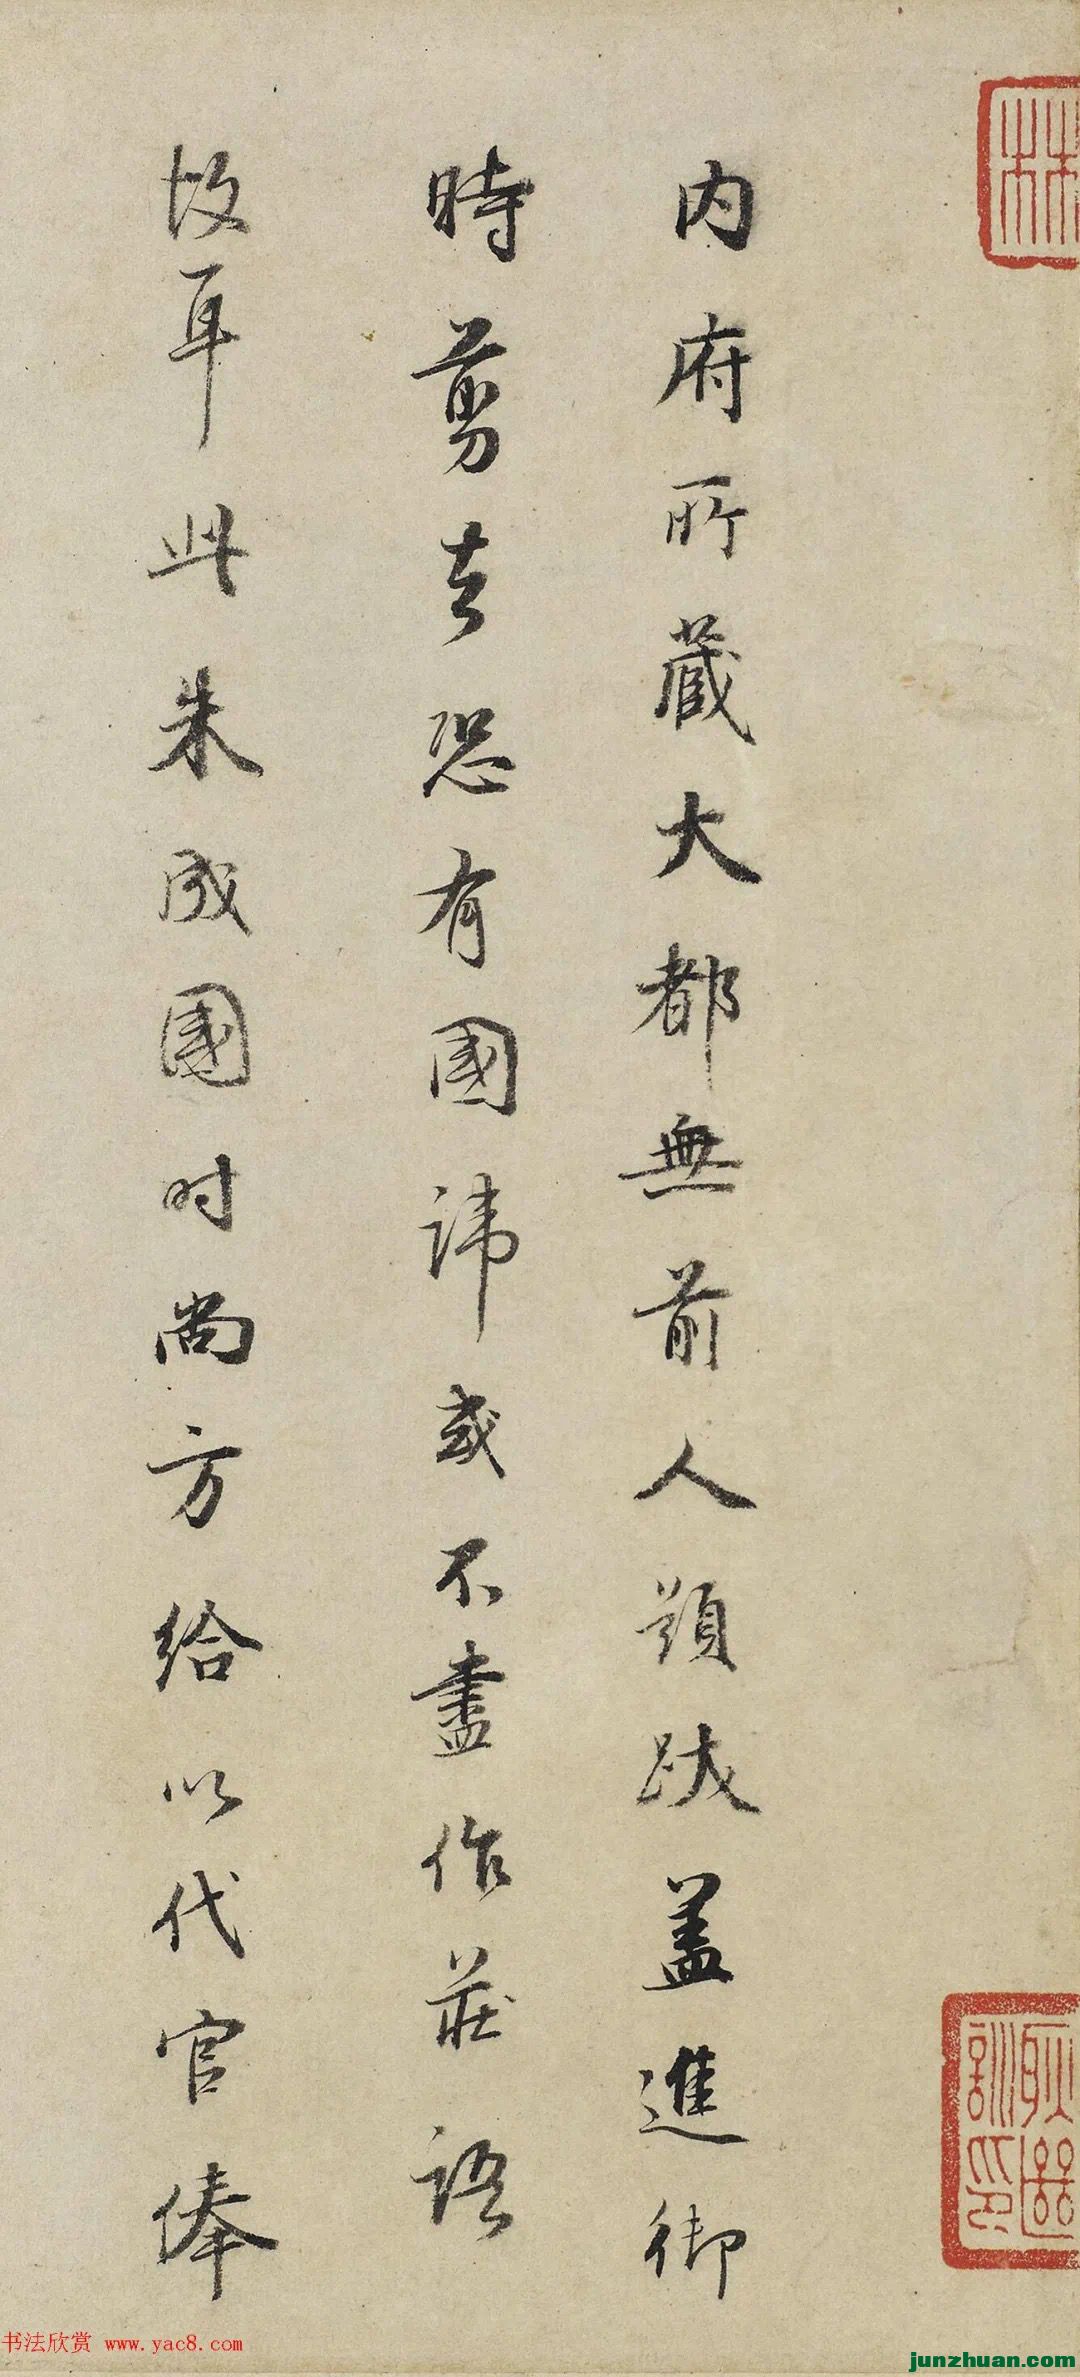 内府所藏大都無前人題跋蓋進御
時剪去恐有國諱或不盡作莊語
故耳此朱成國时尚方給以代官俸
書法欣赏 www.yac8.com
junzhuan.com